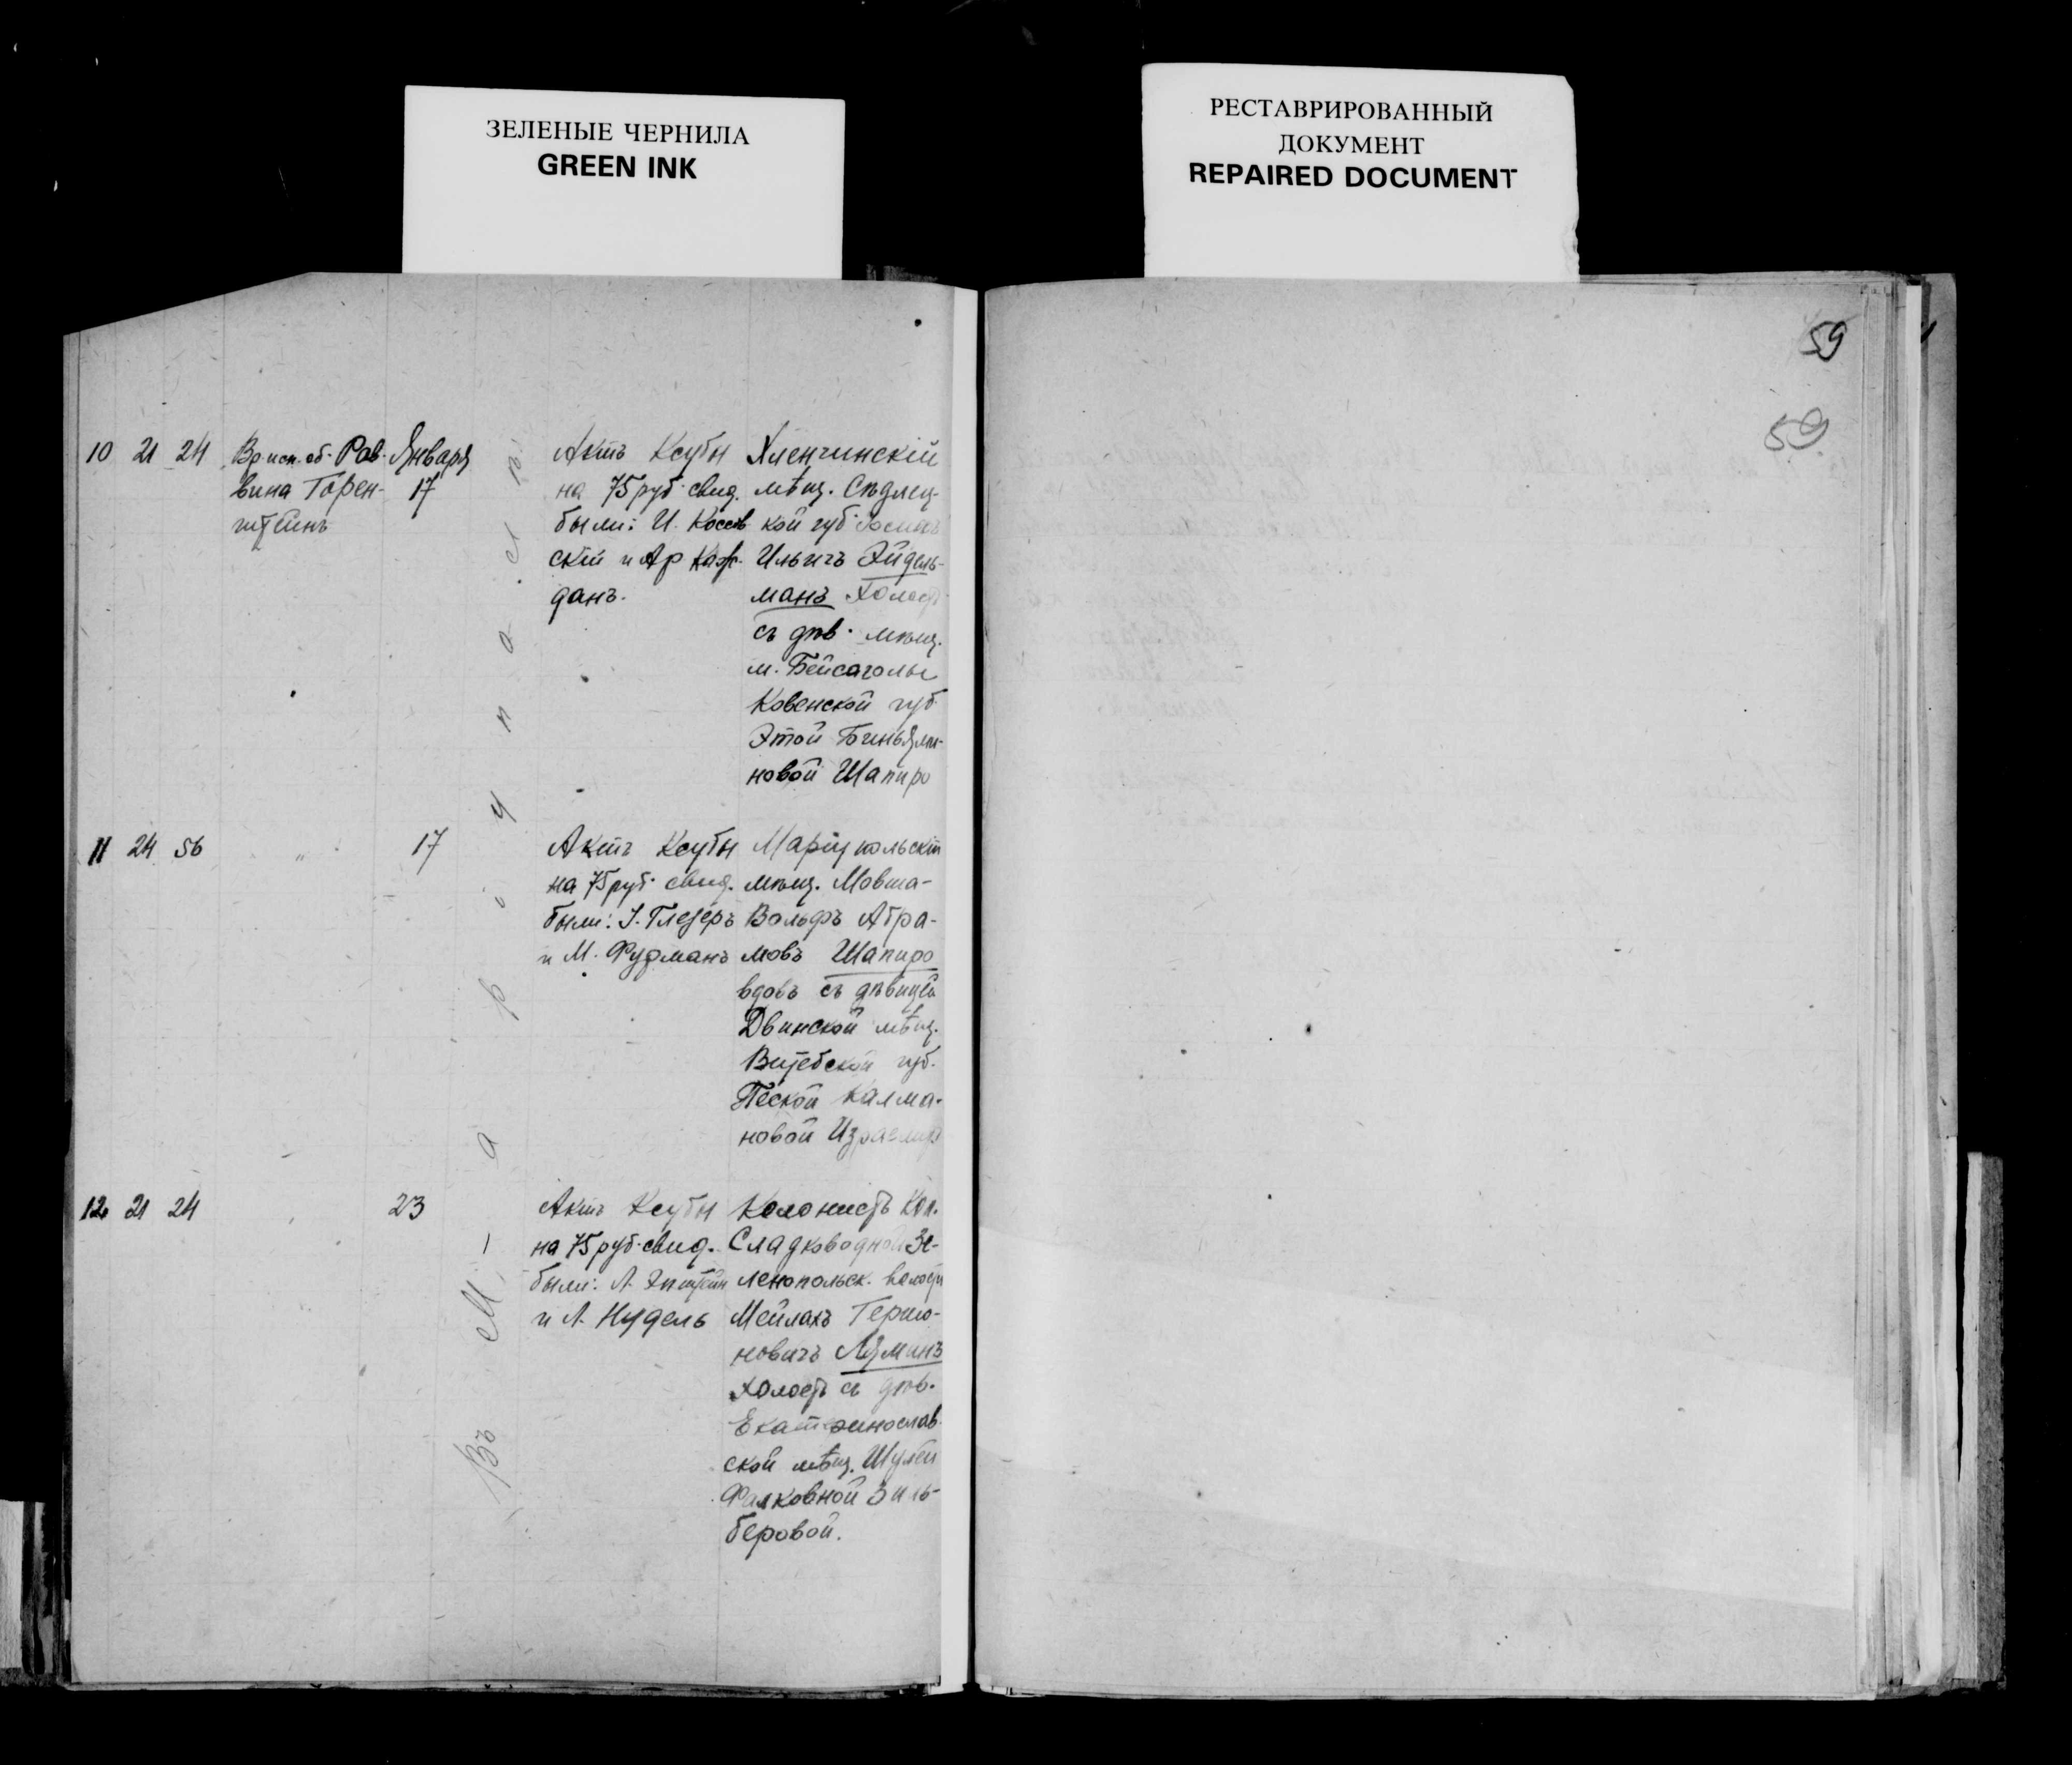 ЗЕЛЕНЫЕ ЧЕРНИЛА
GREEN INK
РЕСТАВРИРОВАННЫЙ
ДОКУМЕНТ
REPAIRED DOCUMENT
59
59
10 21 24 Вр. исп. об. Рав-
вина Горен-
штейнъ
Января
17
Актъ Ксубы
на 75 руб. свид.
были: И. Коссов
скій и Ар Каж-
данъ.
Хленчинскій
мѣщ. Сѣдлец-
кой губ.
Ильичъ Эйдель-
манъ Холостъ
съ дѣв. мѣщ.
м. Бейсаголы
Ковенской губ
Этой Биньями-
новой Шапиро
11 24 56 " 17
Актъ Ксубы
на 75 руб. свид.
были: І. Глезеръ
и М. Фурманъ
Маріупольскій
мѣщ. Мовша-
Вольфъ Абра-
мовъ Шапиро
вдовъ съ дѣвицей
Двинской мѣщ.
Витебской губ.
Пеской Калма-
новой
12 21 24 23
Актъ Ксубы
на 75 руб. свид.
были: Л. Эпштейн
и Л. Нудель
Колонистъ Кол.
Сладководной Зе-
ленопольск. волости
Мейлахъ Гершо-
новичъ Ляминъ
Холостъ съ дѣв.
Екатеринослав-
ской мѣщ.
Фалковной Зиль-
беровой.
Въ М а р і у п о л ѣ